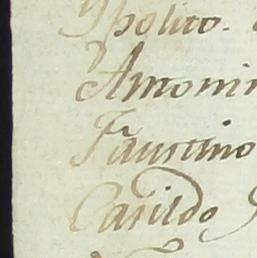 Ypolito.
Antonin
Faustino
Casildo